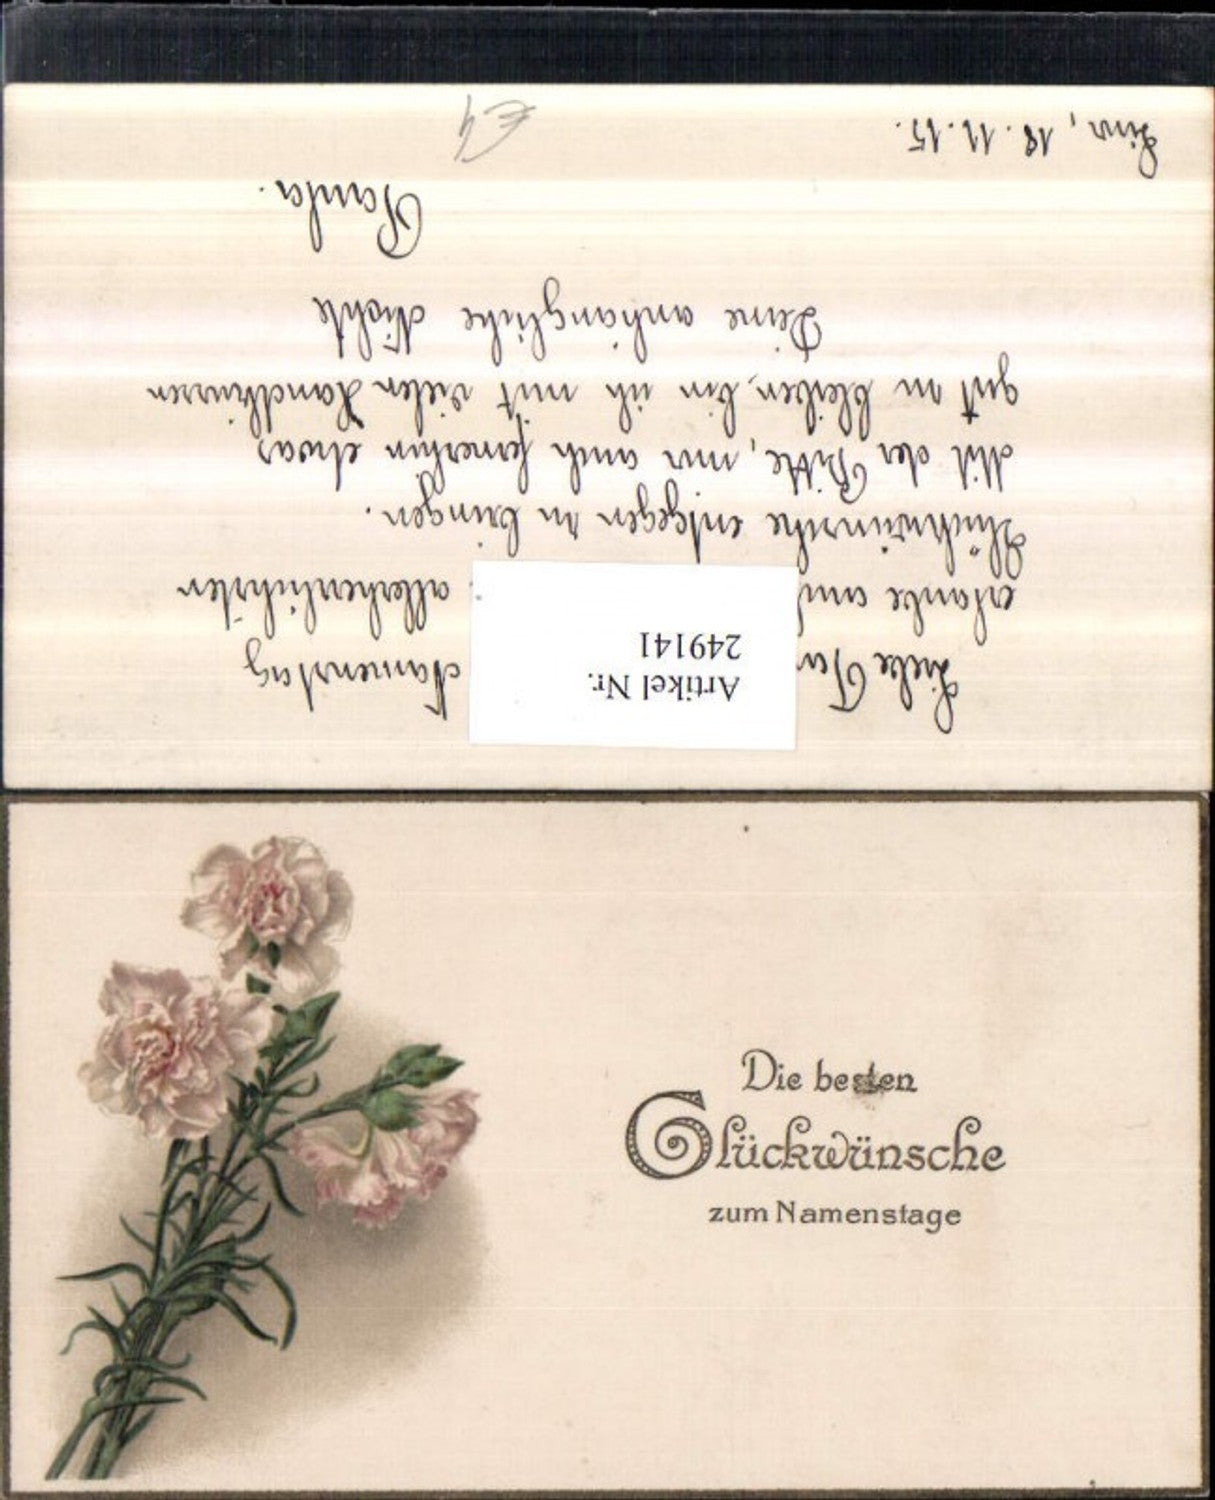 Liebe Namenstag
erlaube allerherzlichsten
Glückwünsche entgegen zu bringen.
Mit der Bitte, mir auch fernerhin etwas
gut zu bleiben, bin ich mit vielen Handküssen
Deine anhängliche Nichte
Paula.
18.11.15.
€4
Artikel Nr.
249141
Die besten
Glückwünsche
zum Namenstage